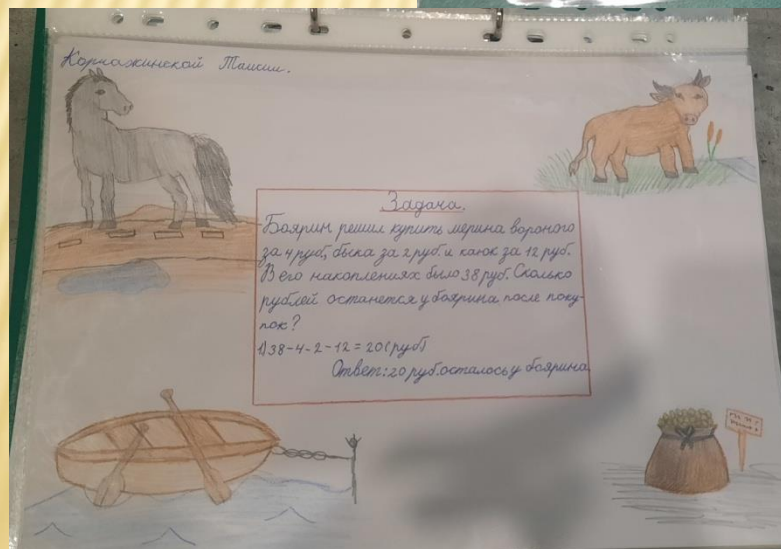 Корнажинской Таисии.
Задача.
Боярин решил купить мерина вороного
за 4 руб, быка за 2 руб. и каюк за 12 руб.
В его накоплениях было 38 руб. Сколько
рублей останется у боярина после поку-
пок?
1) 38-4-2-12=20(руб)
Ответ: 20 руб. осталось у боярина